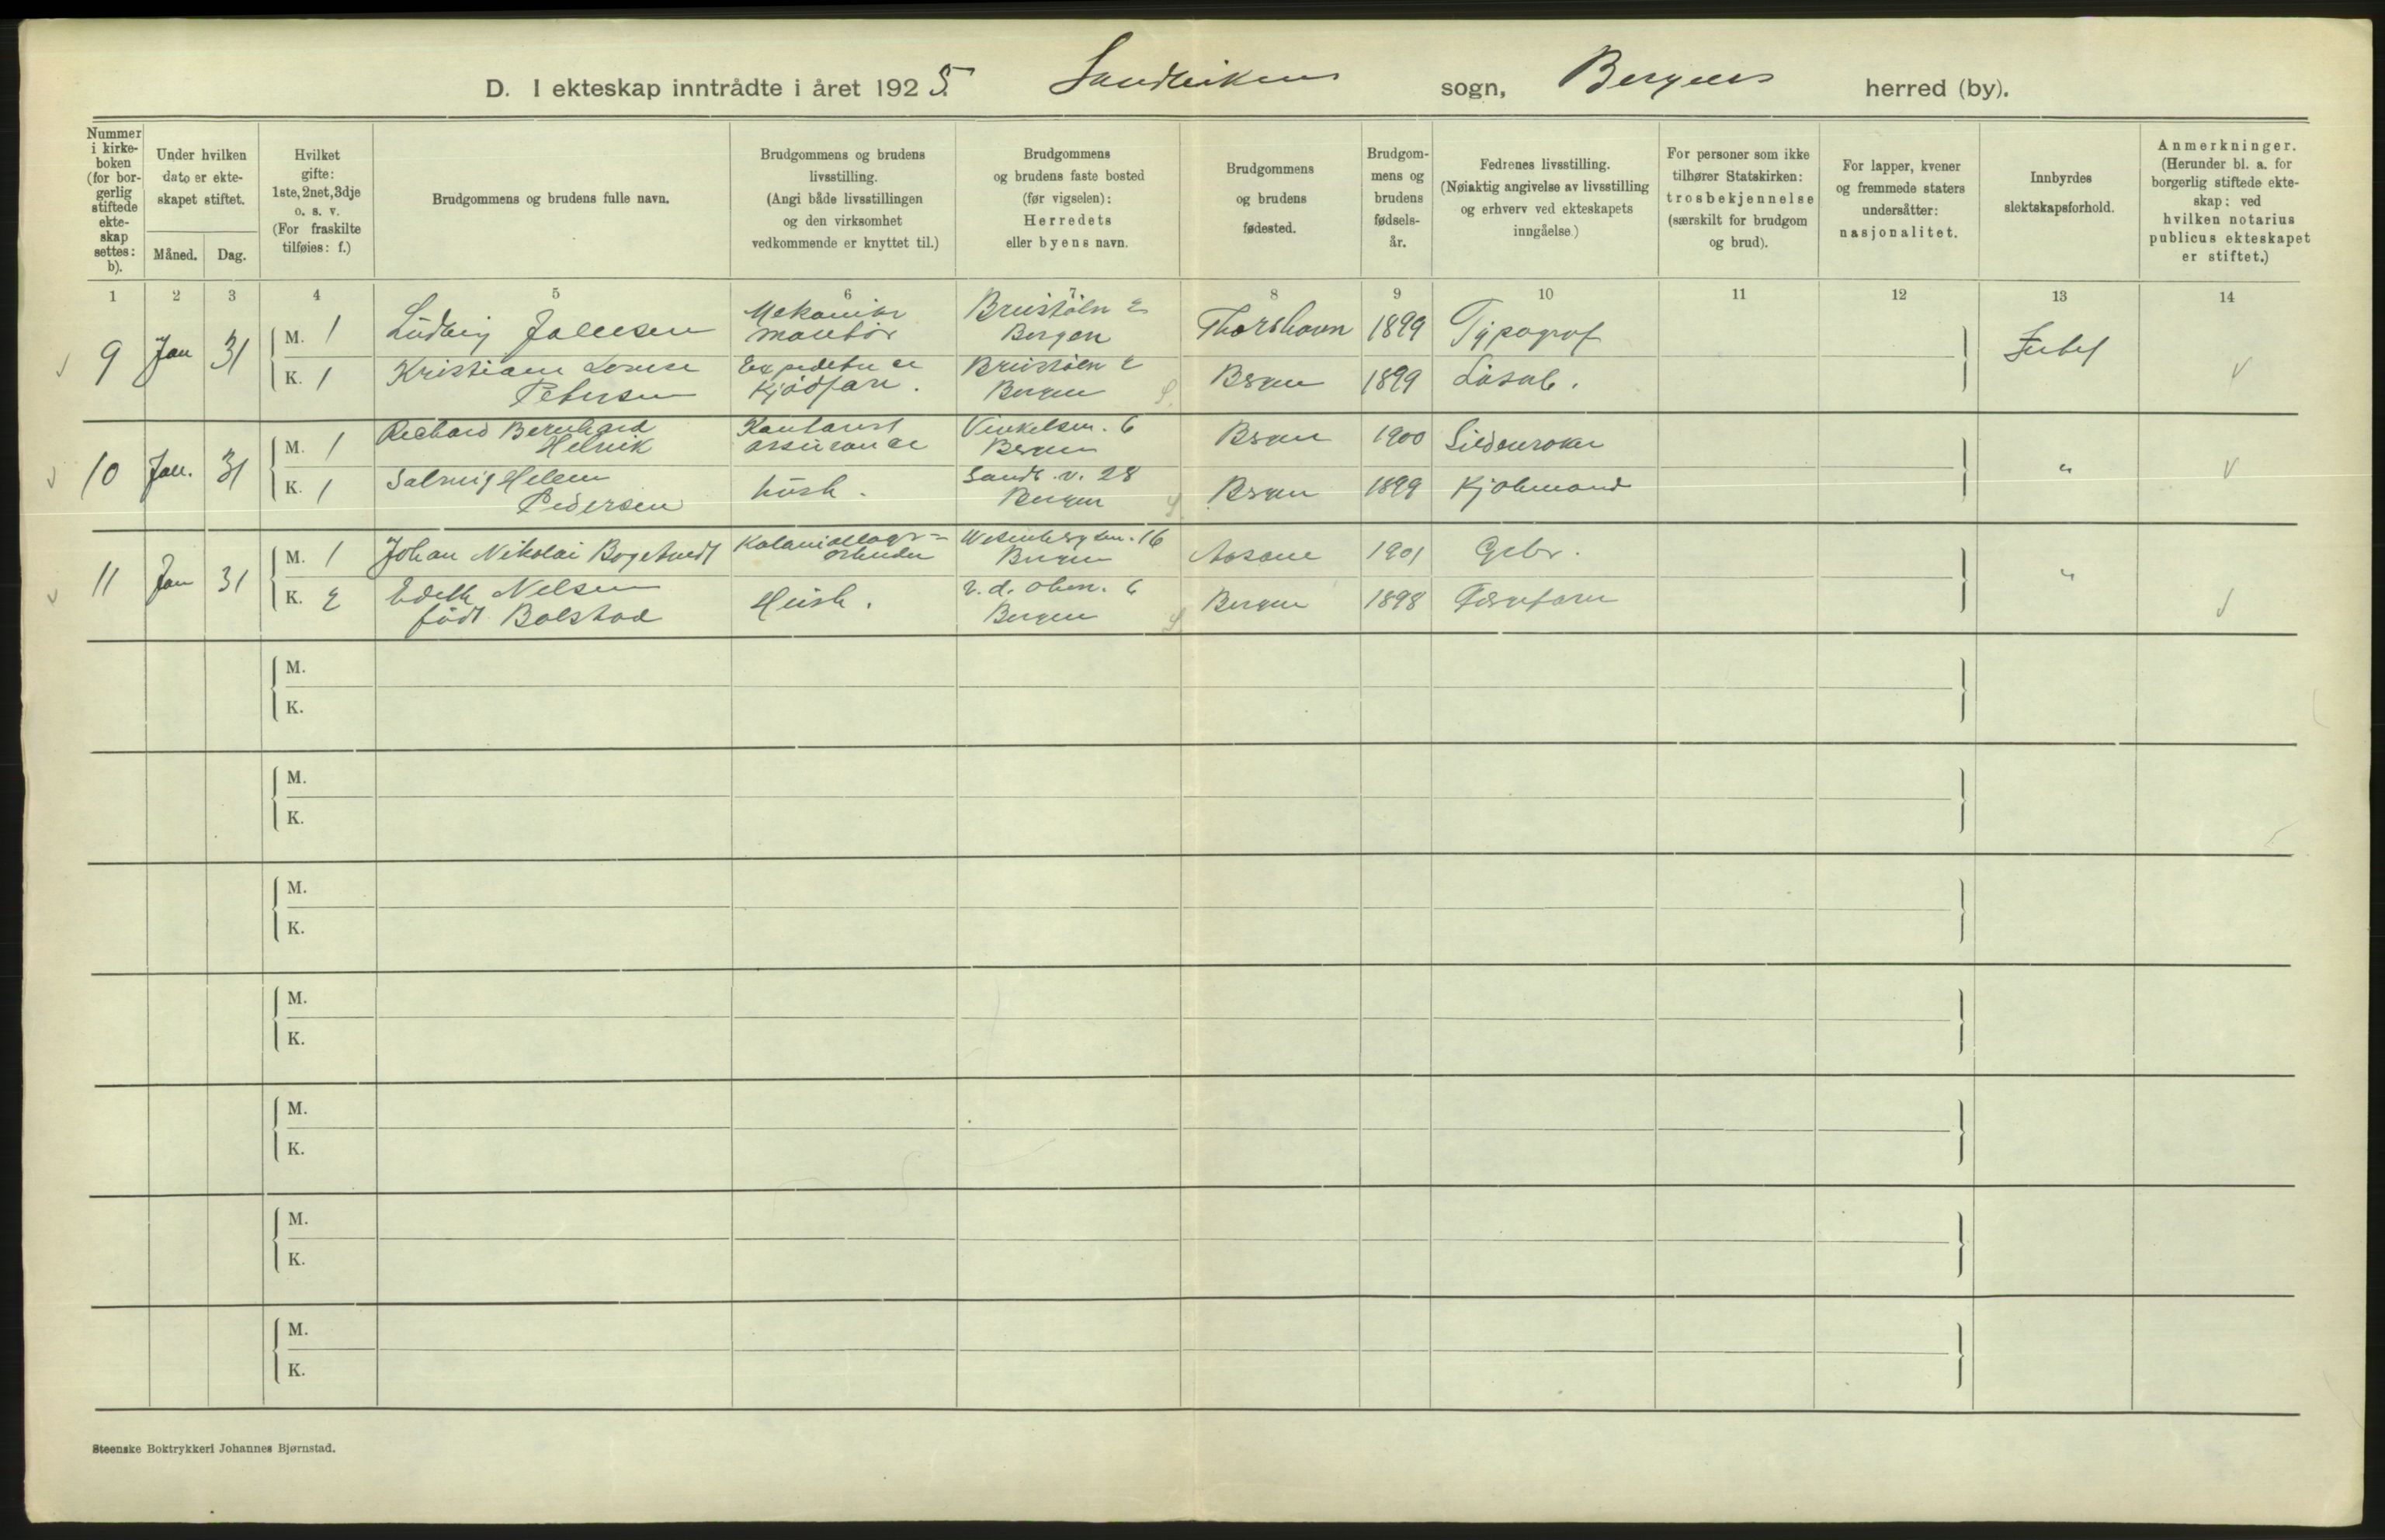 D. I ekteskap inntrådte i året 1925. Sandvikens sogn, Bergens herred (by).
Nummer
i kirke-
boken
(for bor-
gerlig
stiftede
ekte-
skap
settes:
b).
Under hvilken
dato er ekte-
skapet stiftet.
Måned.
Dag.
Hvilket
gifte:
1ste, 2net, 3dje
o. s. v.
(For fraskilte
tilføies: f.)
Brudgommens og brudens fulle navn.
Brudgommens og brudens
livsstilling.
(Angi både livsstillingen
og den virksomhet
vedkommende er knyttet til.)
Brudgommens
og brudens faste bosted
(før vigselen):
Herredets
eller byens navn.
Brudgommens
og brudens
fødested.
Brudgom-
mens og
brudens
fødsels-
år.
Fedrenes livsstilling.
(Nøiaktig angivelse av livsstilling
og erhverv ved ekteskapets
inngåelse)
For personer som ikke
tilhører Statskirken:
trosbekjennelse
(særskilt for brudgom
og brud).
For lapper, kvener
og fremmede staters
undersåtter:
nasjonalitet.
Innbyrdes
slektskapsforhold.
Anmerkninger.
(Herunder bl. a. for
borgerlig stiftede ekte-
skap: ved
hvilken notarius
publicus ekteskapet
er stiftet.)
1 2 3 4 5 6 7 8 9 10 11 12 13 14
9 Jan 31
M. 1 Ludvig
Montør
Bergen
Thorshavn 1899 Typograf
K. 1 Kristiane Louise
Petersen
Bergen
Bergen 1899
10 Jan. 31
M. 1 Richard Bernhard
Kontorist
assurance
Vinkelsm. 6
Bergen
Bergen 1900
K. 1 Solveig Helen
Pedersen
Hush.
Sandv. v. 28
Bergen
Bergen 1899 Kjøbmand
"
11 Jan 31
M. 1 Johan Nikolai
Bergen
Aasane 1901 Gbr.
K. 2 Edith Nilsen
født Bolstad
Hush.
Bergen
Bergen 1898
"
M.
K.
M.
K.
M.
K.
M.
K.
M.
K.
M.
K.
M.
K.
Steenske Boktrykkeri Johannes Bjørnstad.